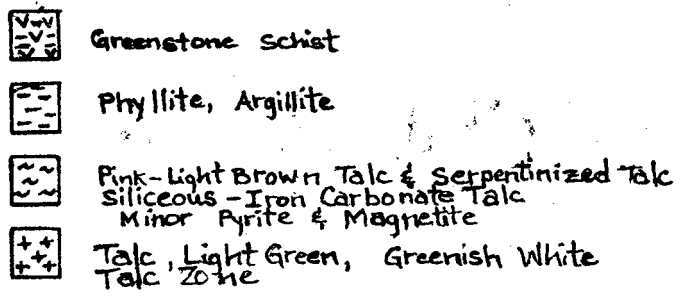 Greenstone Schist
Phyllite, Argillite
Pink-Light Brown Talc & Serpentinized Talc
Siliceous-Iron Carbonate Talc
Minor Pyrite & Magnetite
Talc, Light Green, Greenish White
Talc Zone